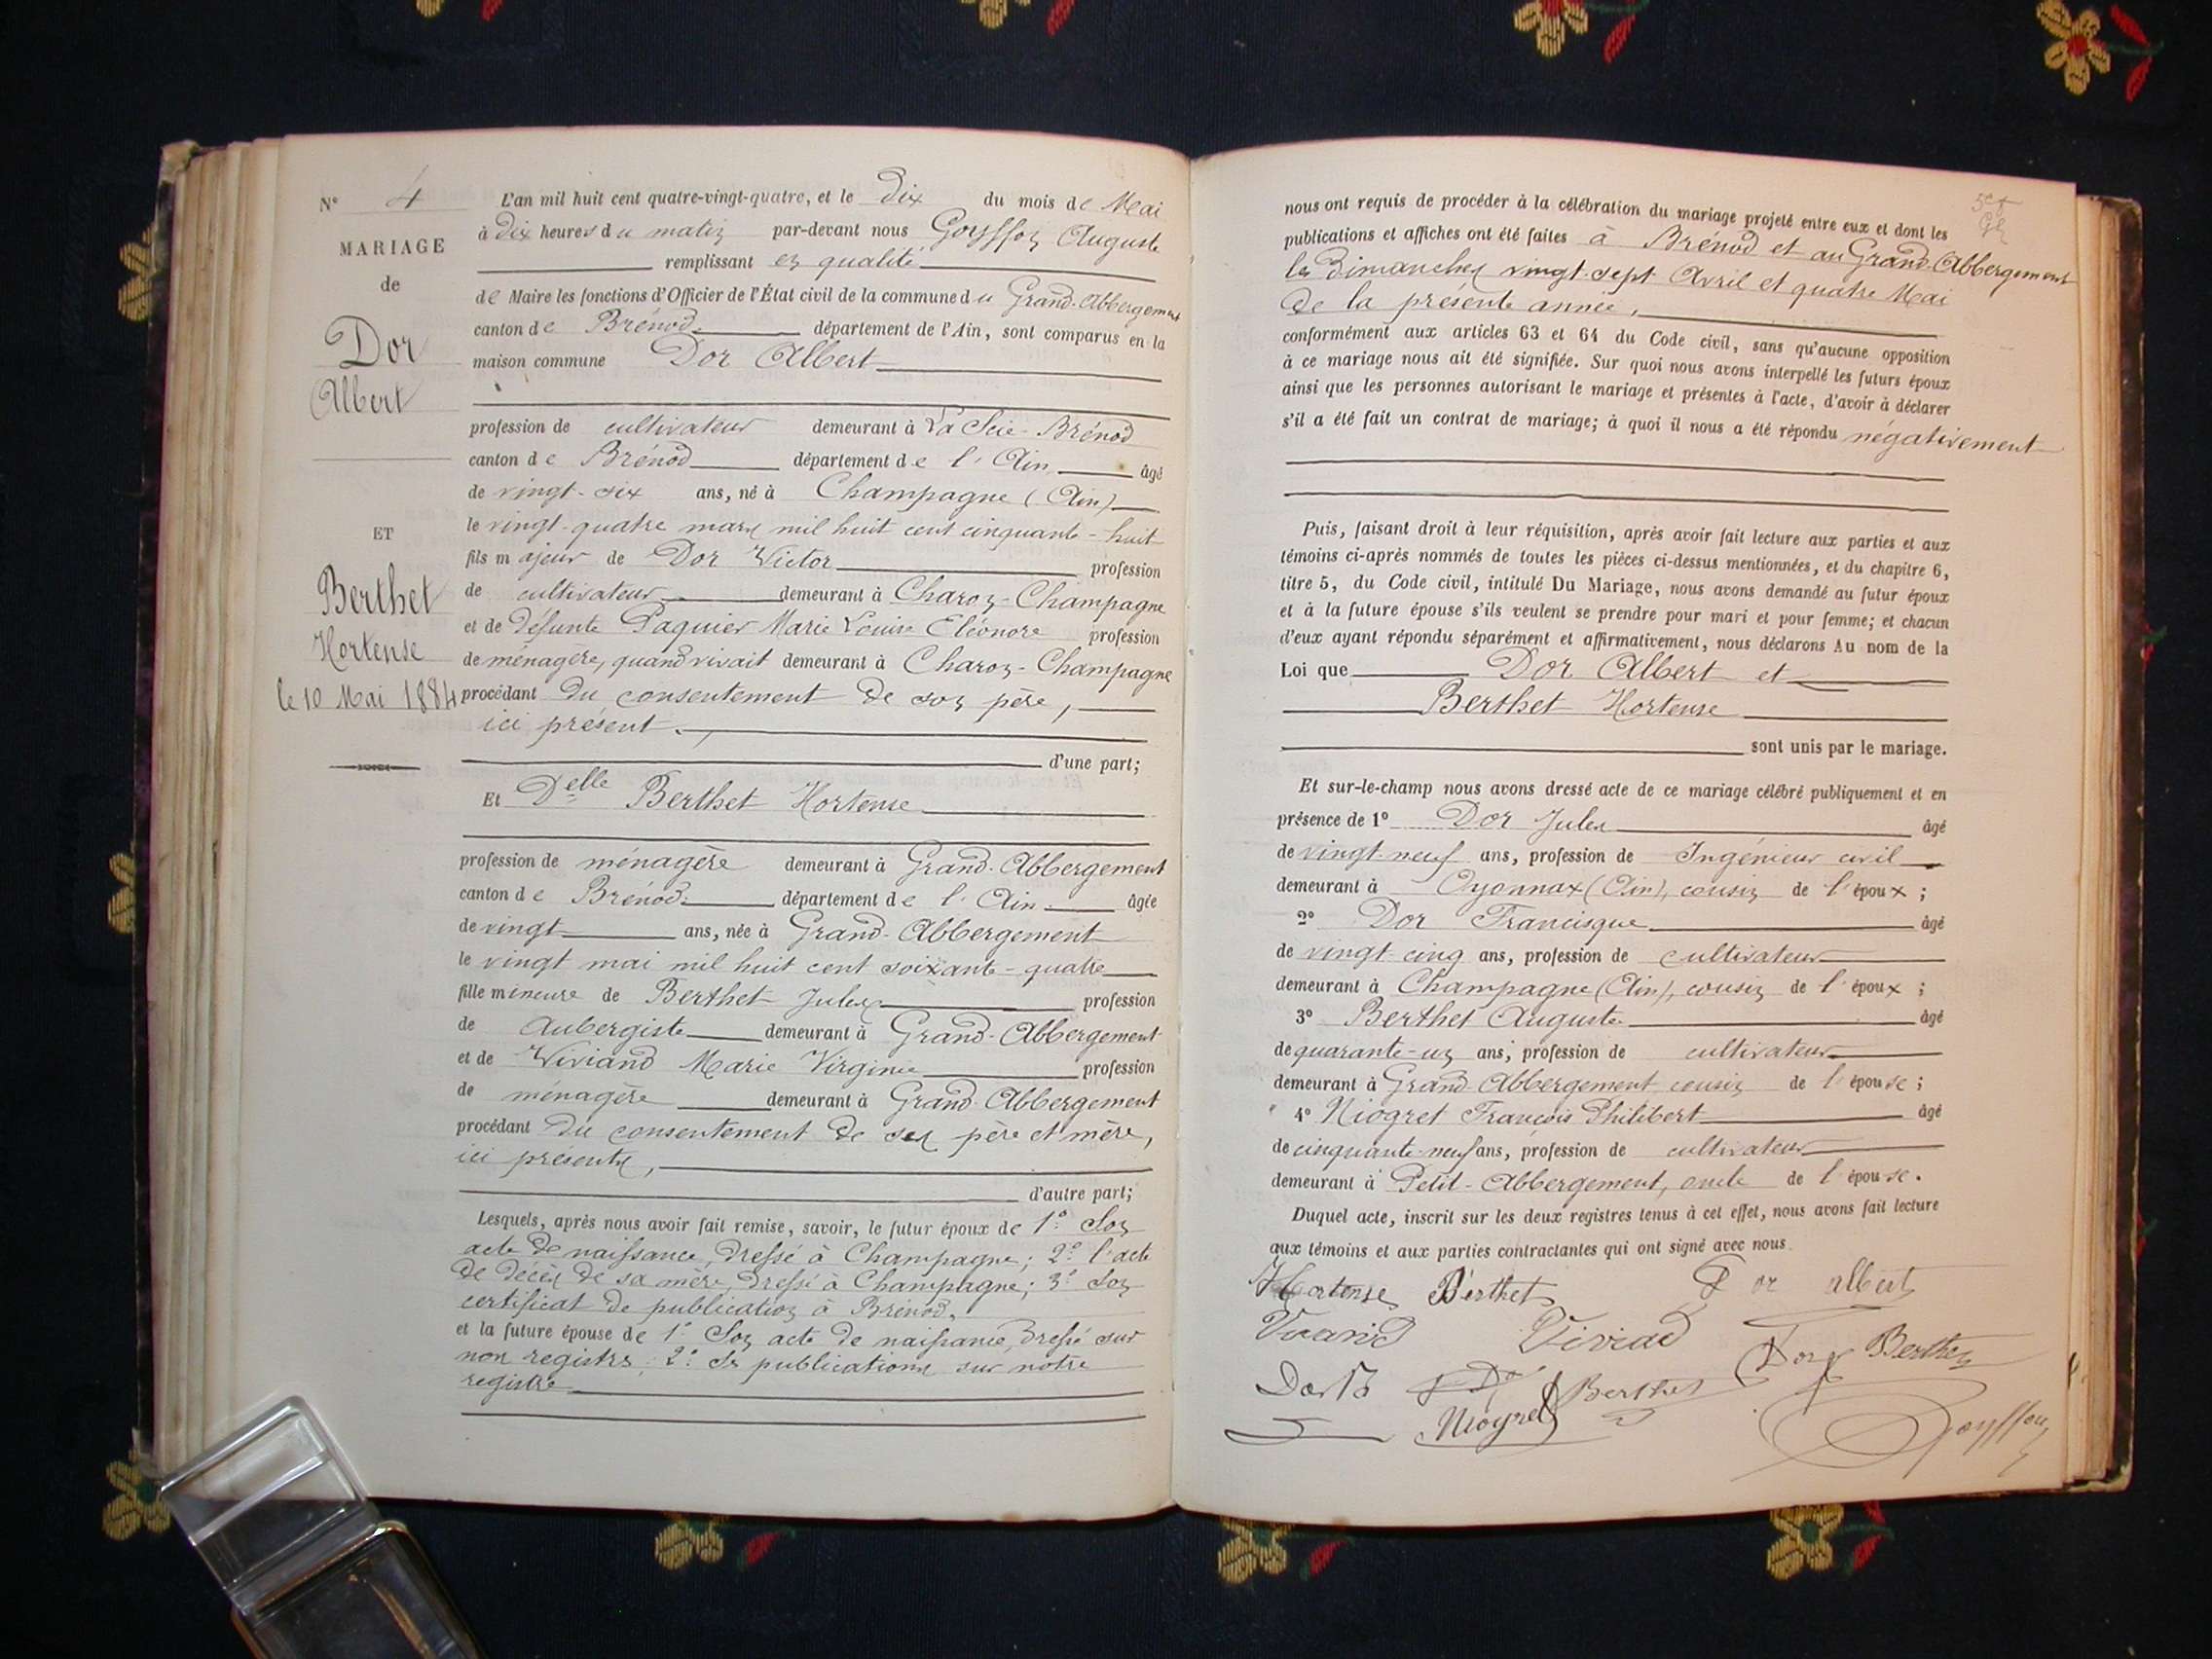 N° 4
MARIAGE
de
Dor
Albert
ET
Berthet
Hortense
le 10 Mai 1884
L'an mil huit cent quatre-vingt-quatre, et le Dix du mois de Mai
à Dix heures du matin par-devant nous Goyffon Auguste
remplissant en qualité
de Maire les fonctions d'Officier de l'État civil de la commune du Grand-Abbergement
canton de Brénod département de l'Ain, sont comparus en la
maison commune Dor Albert
profession de cultivateur demeurant à La Scie-Brénod
canton de Brénod département de l'Ain âgé
de vingt-six ans, né à Champagne (Ain)
le vingt-quatre mars mil huit cent cinquante-huit
fils majeur de Dor Victor profession
de cultivateur demeurant à Charon-Champagne
et de défunte Paquier Marie Louise Eléonore profession
de ménagère, quand vivait demeurant à Charon-Champagne
procédant du consentement de son père,
ici présent.
d'une part;
Et Delle Berthet Hortense
profession de ménagère demeurant à Grand-Abbergement
canton de Brénod département de l'Ain âgée
de vingt ans, née à Grand-Abbergement
le vingt mai mil huit cent soixante-quatre
fille mineure de Berthet Jules profession
de Aubergiste demeurant à Grand-Abbergement
et de Viviand Marie Virginie profession
de ménagère demeurant à Grand-Abbergement
procédant du consentement de ses père et mère,
ici présents,
d'autre part;
Lesquels, après nous avoir fait remise, savoir, le futur époux de 1° Son
acte de naissance, dressé à Champagne; 2° l'acte
de décès de sa mère, dressé à Champagne; 3° Son
certificat de publication à Brénod,
et la future épouse de 1° Son acte de naissance, dressé sur
nos registres; 2° de publications sur notre
registre
nous ont requis de procéder à la célébration du mariage projeté entre eux et dont les
publications et affiches ont été faites à Brénod et au Grand-Abbergement
les Dimanches vingt-sept Avril et quatre Mai
de la présente année,
conformément aux articles 63 et 64 du Code civil, sans qu'aucune opposition
à ce mariage nous ait été signifiée. Sur quoi nous avons interpellé les futurs époux
ainsi que les personnes autorisant le mariage et présentes à l'acte, d'avoir à déclarer
s'il a été fait un contrat de mariage; à quoi il nous a été répondu négativement
Puis, faisant droit à leur réquisition, après avoir fait lecture aux parties et aux
témoins ci-après nommés de toutes les pièces ci-dessus mentionnées, et du chapitre 6,
titre 5, du Code civil, intitulé Du Mariage, nous avons demandé au futur époux
et à la future épouse s'ils veulent se prendre pour mari et pour femme; et chacun
d'eux ayant répondu séparément et affirmativement, nous déclarons Au nom de la
Loi que Dor Albert et
Berthet Hortense
sont unis par le mariage.
Et sur-le-champ nous avons dressé acte de ce mariage célébré publiquement et en
présence de 1° Dor Jules âgé
de vingt-neuf ans, profession de Ingénieur civil
demeurant à Oyonnax (Ain), cousin de l'époux;
2° Dor Francisque âgé
de vingt-cinq ans, profession de cultivateur
demeurant à Champagne (Ain), cousin de l'époux;
3° Berthet Auguste âgé
de quarante-un ans, profession de cultivateur
demeurant à Grand-Abbergement cousin de l'épouse;
4° Niogret François Philibert âgé
de cinquante-neuf ans, profession de cultivateur
demeurant à Petit-Abbergement, oncle de l'épouse.
Duquel acte, inscrit sur les deux registres tenus à cet effet, nous avons fait lecture
aux témoins et aux parties contractantes qui ont signé avec nous.
Hortense Berthet Dor albert
Viviad
Dor Berthet
Berthet
Niogret Goyffon